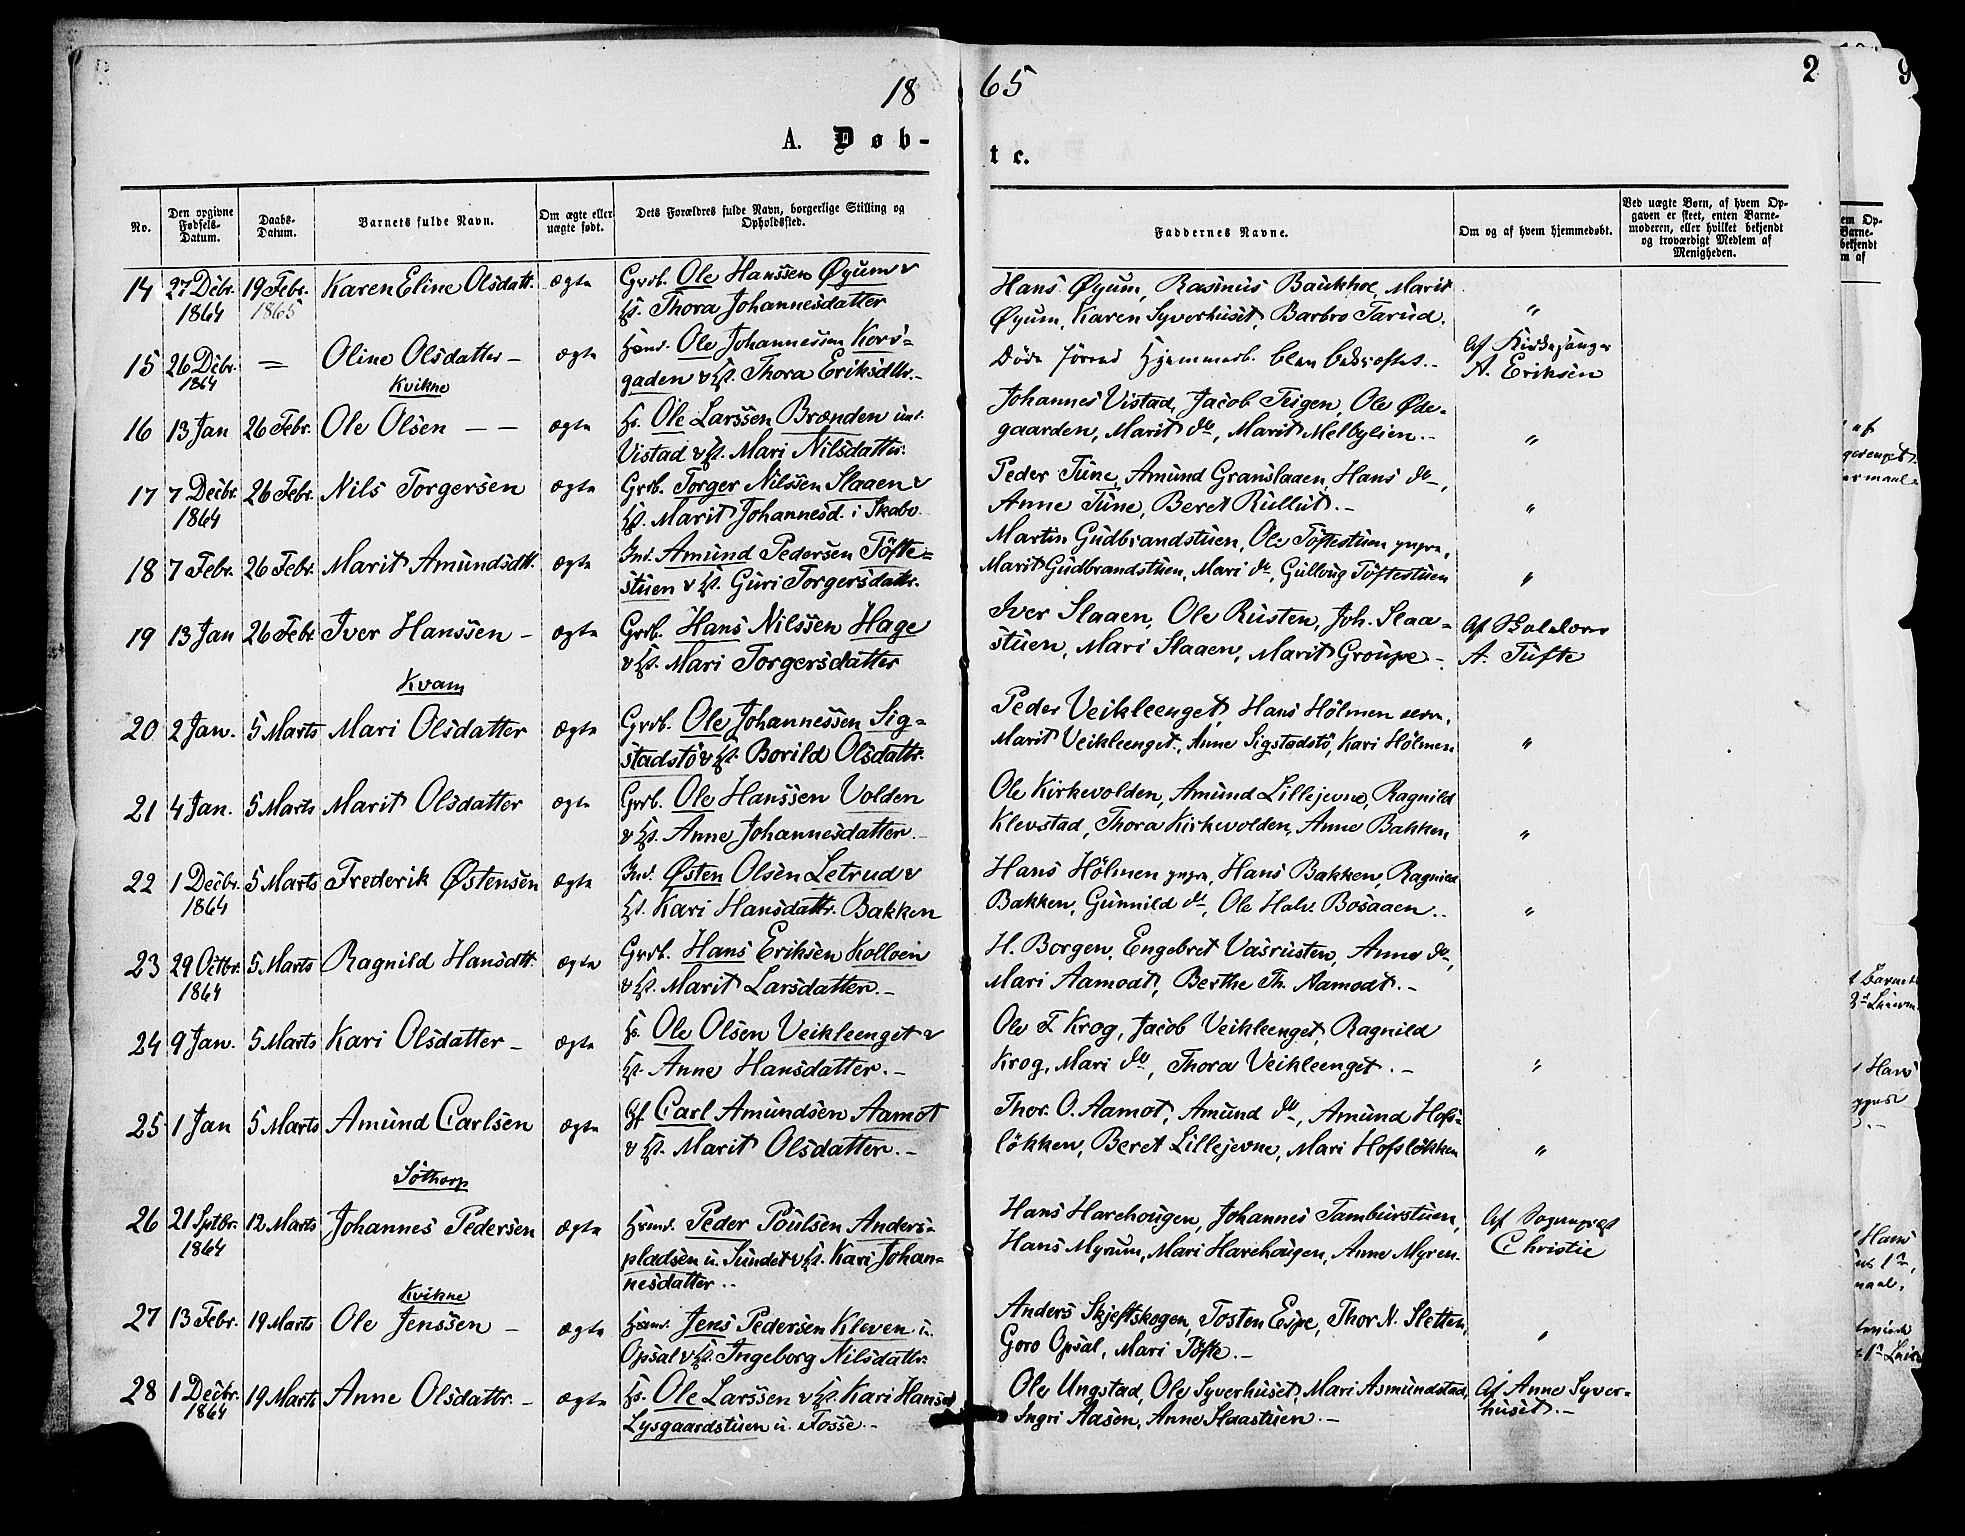 18 65 2
A. Døb- t c.
No. Den opgivne Fødsels-Datum. Daabs-Datum. Barnets fulde Navn. Om ægte eller uægte født. Dets Forældres fulde Navn, borgerlige Stilling og Opholdssted. Faddernes Navne. Om og af hvem hjemmedøbt. Ved uægte Børn, af hvem Opgaven er skeet, enten Barnemoderen, eller hvilket bekjendt og troværdigt Medlem af Menigheden.
14 27 Decbr. 19 Febr. Karen Eline Olsdatt. ægte Grdb. Ole Hanssen Øyum & Hans Øyum, Rasmus Baukhol, Marit
1864 1865 Hst. Thora Johannesdatter Øyum, Karen Syverhuset, Barbro Tarud. "
15 26 Decbr. = Oline Olsdatter – ægte Hsmd. Ole Johannessen Kors- Døde førend Hjemmedb. blev bekræftet. – Af Kirkesanger
1864 gaden & Hst. Thora Eriksdttr. – A. Eriksen
Kvikne
16 13 Jan 26 Febr. Ole Olsen – – ægte Hs. Ole Larssen Brænden und. Johannes Vistad, Jacob Teigen, Ole Øde-
Vistad & Hst. Mari Nilsdatter. gaarden, Marit do, Marit Melbylien. – "
17 7 Decbr. 26 Febr. Nils Torgersen ægte Grdb. Torger Nilssen Slaaen & Peder Tune, Amund Granslaaen, Hans do,
1864 Hst. Marit Johannesd. i Skabo Anne Tune, Beret Rullut. – "
18 7 Febr. 26 Febr. Marit Amundsdtt. ægte Ind. Amund Pedersen Töfte- Martin Gudbrandstuen, Ole Töftestuen yngre,
stuen & Hst. Guri Torgersdattr. Marit Gudbrandstuen, Mari do, Gullaug Töftestuen "
19 13 Jan 26 Febr Iver Hanssen – ægte Grdb. Hans Nilssen Hage Iver Slaaen, Ole Rusten, Joh. Slaa- Af Skolelærer
& Hst. Mari Torgersdatter stuen, Mari Slaaen, Marit Groupe –. A. Tufte
Kvam
20 2 Jan. 5 Marts Mari Olsdatter ægte Grdb. Ole Johannessen Sig- Peder Veikleenget, Hans Hölmen
stadstö & Hst. Borild Olsdattr. Marit Veikleenget, Anne Sigstadstö, Kari Hölmen "
21 4 Jan. 5 Marts Marit Olsdatter ægte Grdb. Ole Hanssen Volden Ole Kirkevolden, Amund Lillejevne, Ragnild
& Hst. Anne Johannesdatter. – Klevstad, Thora Kirkevolden, Anne Bakken "
22 1 Decbr. 5 Marts Frederik Østensen ægte Ind. Østen Olsen Letrud & Hans Hölmen yngre, Hans Bakken, Ragnild
1864 Hst. Kari Hansdattr. Bakken Bakken, Gunnild do, Ole Halv. Bosaaen. "
23 29 Octbr. 5 Marts Ragnild Hansdtt. ægte Grdb. Hans Eriksen Kolloen H. Borgen, Engebret Vasrusten, Anne do,
1864 & Hst. Marit Larsdatter. – Mari Aamodt, Berthe Th. Aamodt. –
24 9 Jan. 5 Marts Kari Olsdatter – ægte Hs. Ole Olsen Veikleenget & Ole T. Krog, Jacob Veikleenget, Ragnild
Hst. Anne Hansdatter. – Krog, Mari do, Thora Veikleenget. – "
25 1 Jan 5 Marts Amund Carlsen ægte Gf Carl Amundsen Aamot Thor. O. Aamot, Amund do, Amund Hofs-
& Hst. Marit Olsdatter. – lökken, Beret Lillejevne, Mari Hofslökken "
Söthorp
26 21 Sptbr. 12 Marts Johannes Pedersen ægte Hsmd. Peder Poulsen Anders- Hans Harehougen, Johannes Tamburstuen, Af Sognepræst
1864 pladsen u. Sundet & Hst. Kari Johan- Hans Myrum, Mari Harehougen, Anne Myren. Christie
nesdatter..
Kvikne
27 13 Febr. 19 Marts Ole Jenssen – ægte Hsmd. Jens Pedersen Kleven u. Anders Skjeftskogen, Tosten Eipe, Thor N. Sletten,
Opsal & Hst. Ingeborg Nilsdattr. Goro Opsal, Mari Töfte. – "
28 1 Decbr. 19 Marts Anne Olsdattr. – ægte Hs. Ole Larssen & Hst. Kari Hansd. Ole Ungstad, Ole Syverhuset, Mari Asmundstad, Af Anne Syver-
1864 Lysgaardstuen u. Fosse – Ingri Aasen, Anne Slaastuen. – huset. –